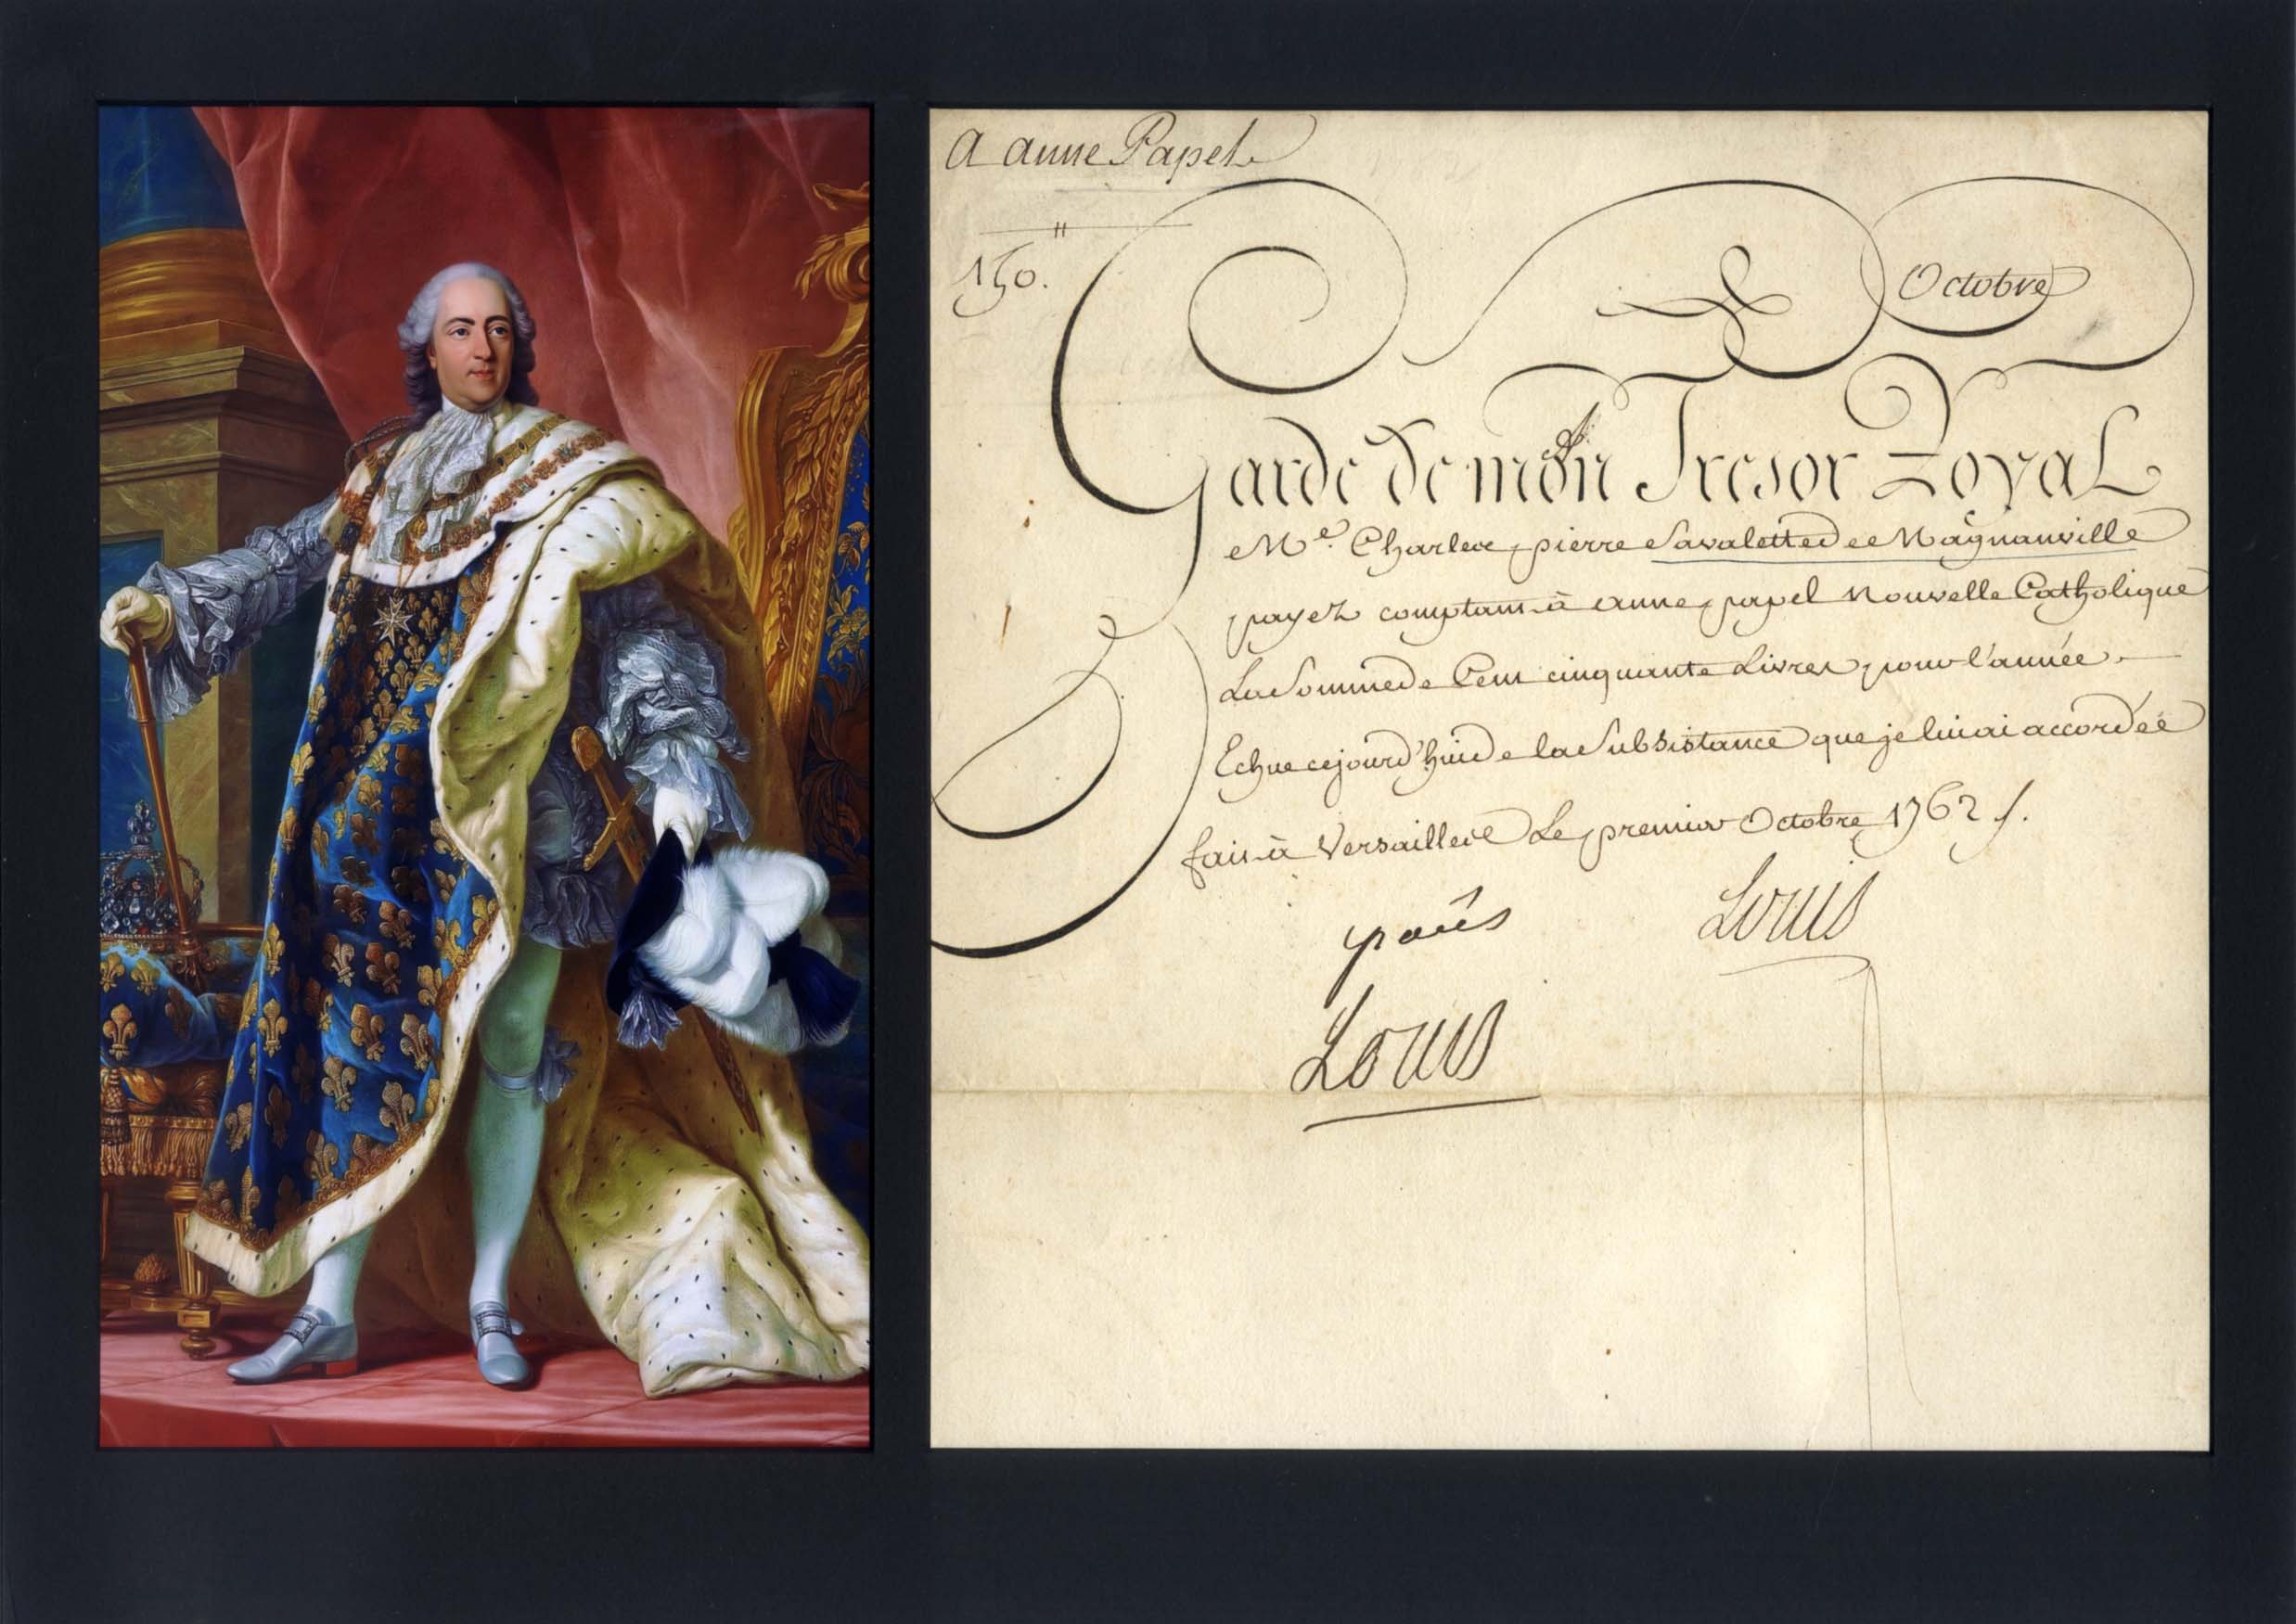 A anne Papel
150.ᴴ
Octobre
Garde de mon Tresor Royal
Mᵉ. Charles pierre Savalette de Magnanville
payez comptant à anne papel Nouvelle Catholique
La Somme de Cent cinquante Livres pour l'année
Echue cejourd'huy de la Subsistance que je lui ai accordée
fait à Versailles Le premier Octobre 1762 ſ.
Louis
Louis